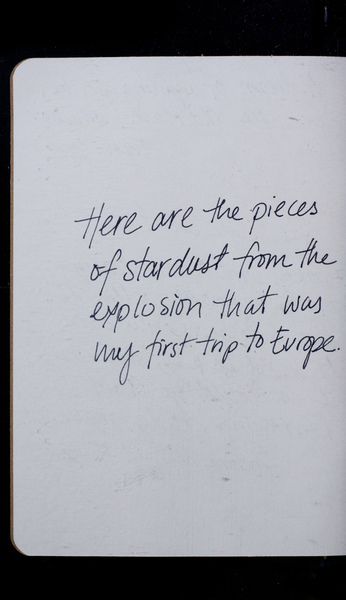 Here are the pieces
of stardust from the
explosion that was
my first trip to Europe.